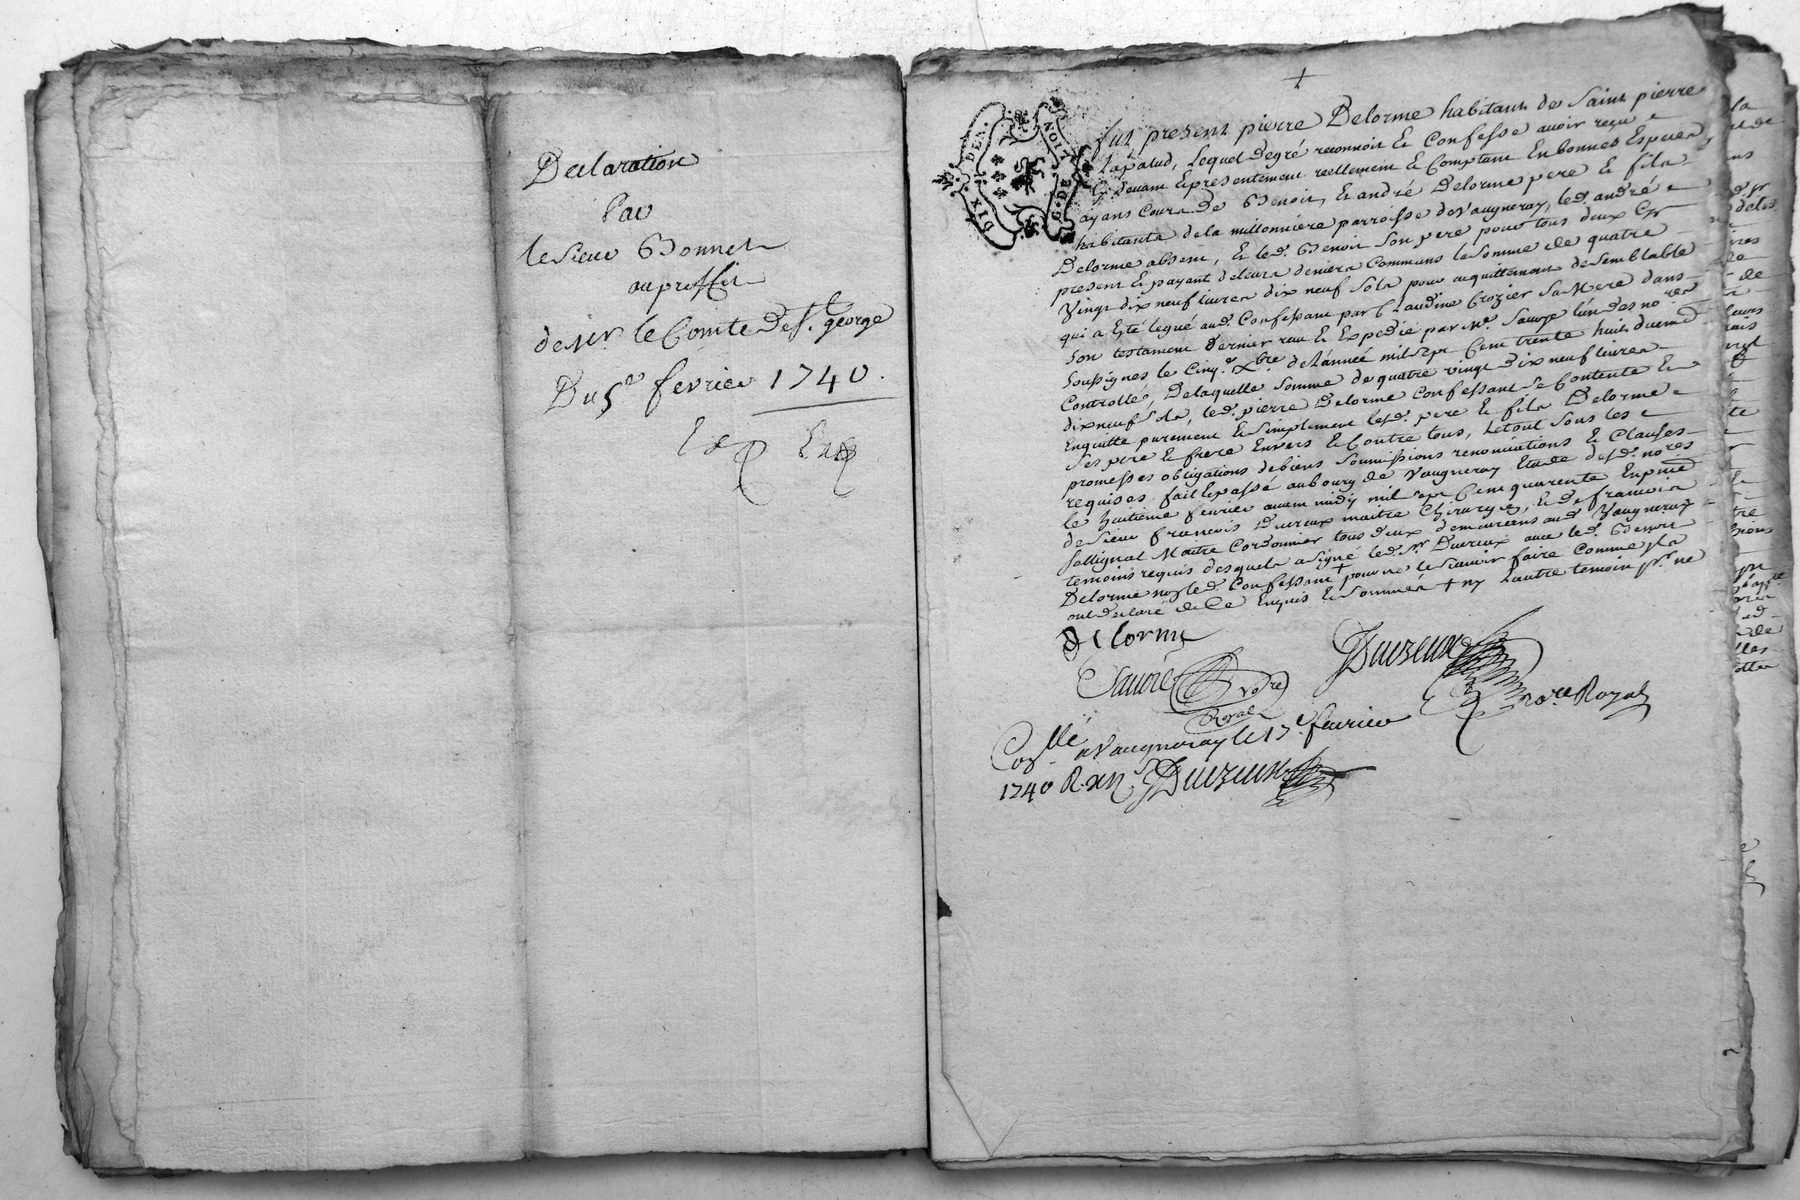 Declaration
Par
le Sieur Bonnet
au proffit
de mr. le Comte de St. george
Du 5e fevrier 1740.
DIX DEN.
G. DE LION
fut present pierre Delorme habitant de Saint pierre
Lapalud, lequel degré reconnoit et Confesse avoir reçu
Cy devant et presentement reellement et Comptant En bonnes Especes
ayans Cours de Benoit, et andré Delorme pere et fils
habitants de la millonniere parroisse de Vaugneray, led. andré
Delorme absent, et led. Benoit son pere pour tous deux Cy
present et payent de leurs deniers Communs la somme de quatre
vingt dix neuf livres dix neuf sols pour acquittement de semblable
qui a Esté legué aud. Confessant par Claudine Crozier sa Mere dans
son testament dernier reçu et Expedié par Me. Sauzé l'un des nores
soussignes le Cinq. xbre. de l'année mil sept Cent trente huit duement
Controllé, De laquelle somme de quatre vingt dix neuf livres
dix neuf sols, led. pierre Delorme Confessant se Contente et
Enquitte purement et simplement lesd. pere et fils Delorme
ses pere et frere Envers et Contre tous, le tout sous les
promesses obligations de biens soumissions renonciations et Clauses
requises fait et passé au bourg de Vaugneray Etude desd. nores
le huitieme fevrier avant midy mil sept Cent quarente En presence
de Sieur francois Dureux maitre Chirurgien, et de francois
Maitre Cordonnier tous deux demeurens aud. Vaugneray
temoins requis desquels a signé led. Sr. Dureux avec led. Benoit
Delorme non led. Confessant + pour ne le scavoir faire comme il a
ont declaré de Ce Enquis et sommés + ny l'autre temoin pr. ne
delorme
Sauzé nore Royal
nore. Royal
Collé a Vaugneray le 17e fevrier
1740 R.